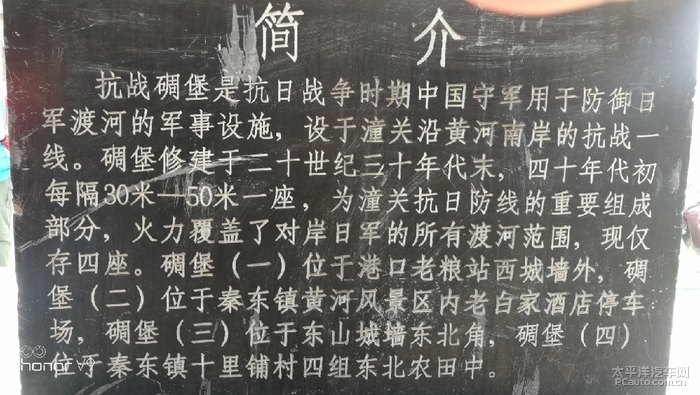 简介
抗战碉堡是抗日战争时期中国守军用于防御日
军渡河的军事设施，设于潼关沿黄河南岸的抗战一
线。碉堡修建于二十世纪三十年代末，四十年代初
每隔30米—50米一座，为潼关抗日防线的重要组成
部分，火力覆盖了对岸日军的所有渡河范围，现仅
存四座。碉堡（一）位于港口老粮站西城墙外，碉
堡（二）位于秦东镇黄河风景区内老白家酒店停车
场，碉堡（三）位于东山城墙东北角，碉堡（四）
位于秦东镇十里铺村四组东北农田中。
honor V9
太平洋汽车网
PCauto.com.cn